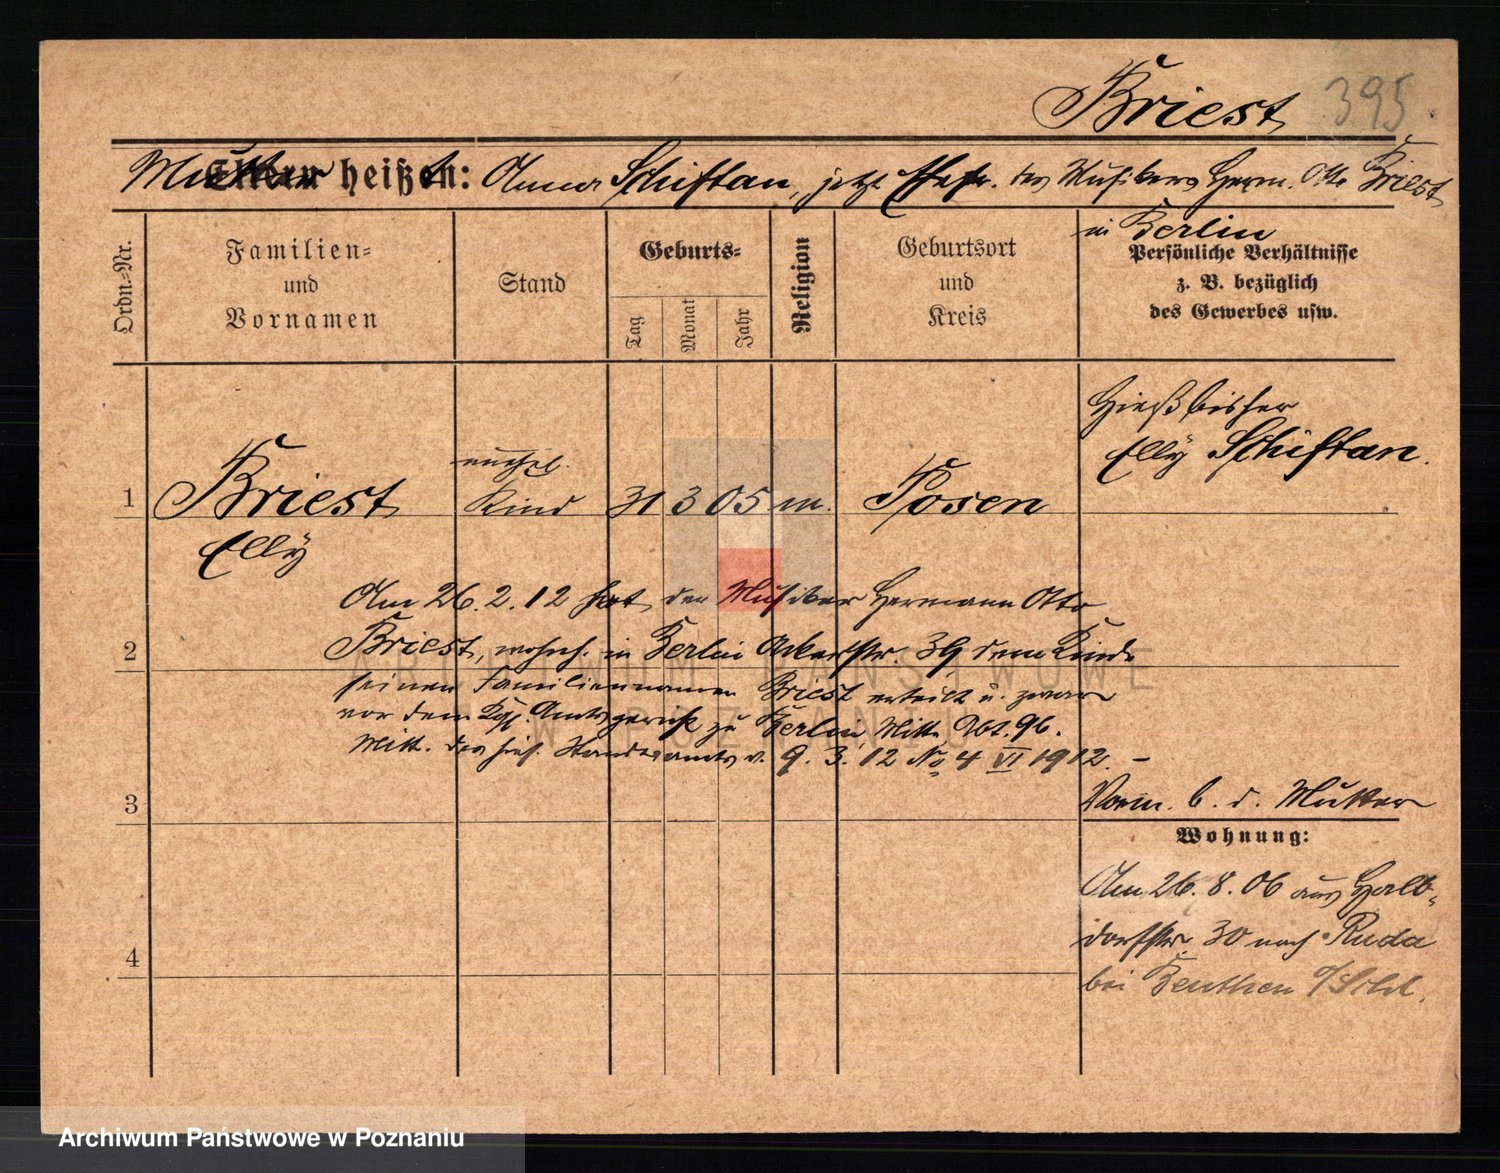 Briest 395.
Mutter heißt: Anna Schiftan, jetzt Ehefr. des Musikers Herm. Otto Briest
in Berlin
Ordn.-Nr.
Familien-
und
Vornamen
Stand
Geburts-
Tag
Monat
Jahr
Religion
Geburtsort
und
Kreis
Persönliche Verhältnisse
z. B. bezüglich
des Gewerbes usw.
Hieß bisher
Elly Schiftan.
unehel.
1 Briest Kind 31 3 05 m. Posen
Elly
Am 26.2.12 hat der Musiker Hermann Otto
2 Briest, wohnh. in Berlin Ackerstr. 39 dem Kinde
seinen Familiennamen Briest erteilt u. zwar
vor dem Kgl. Amtsgericht zu Berlin Mitte Abt. 96.
Mitt. des hies. Standesamts v. 9. 3. 12 No 4 VI 1912. –
3
Vorm. b. d. Mutter
Wohnung:
Am 26. 8. 06 aus Halb-
dorfstr. 30 nach Ruda
4
bei Beuthen o/Schl.
ARCHIWUM PAŃSTWOWE
W POZNANIU
Archiwum Państwowe w Poznaniu